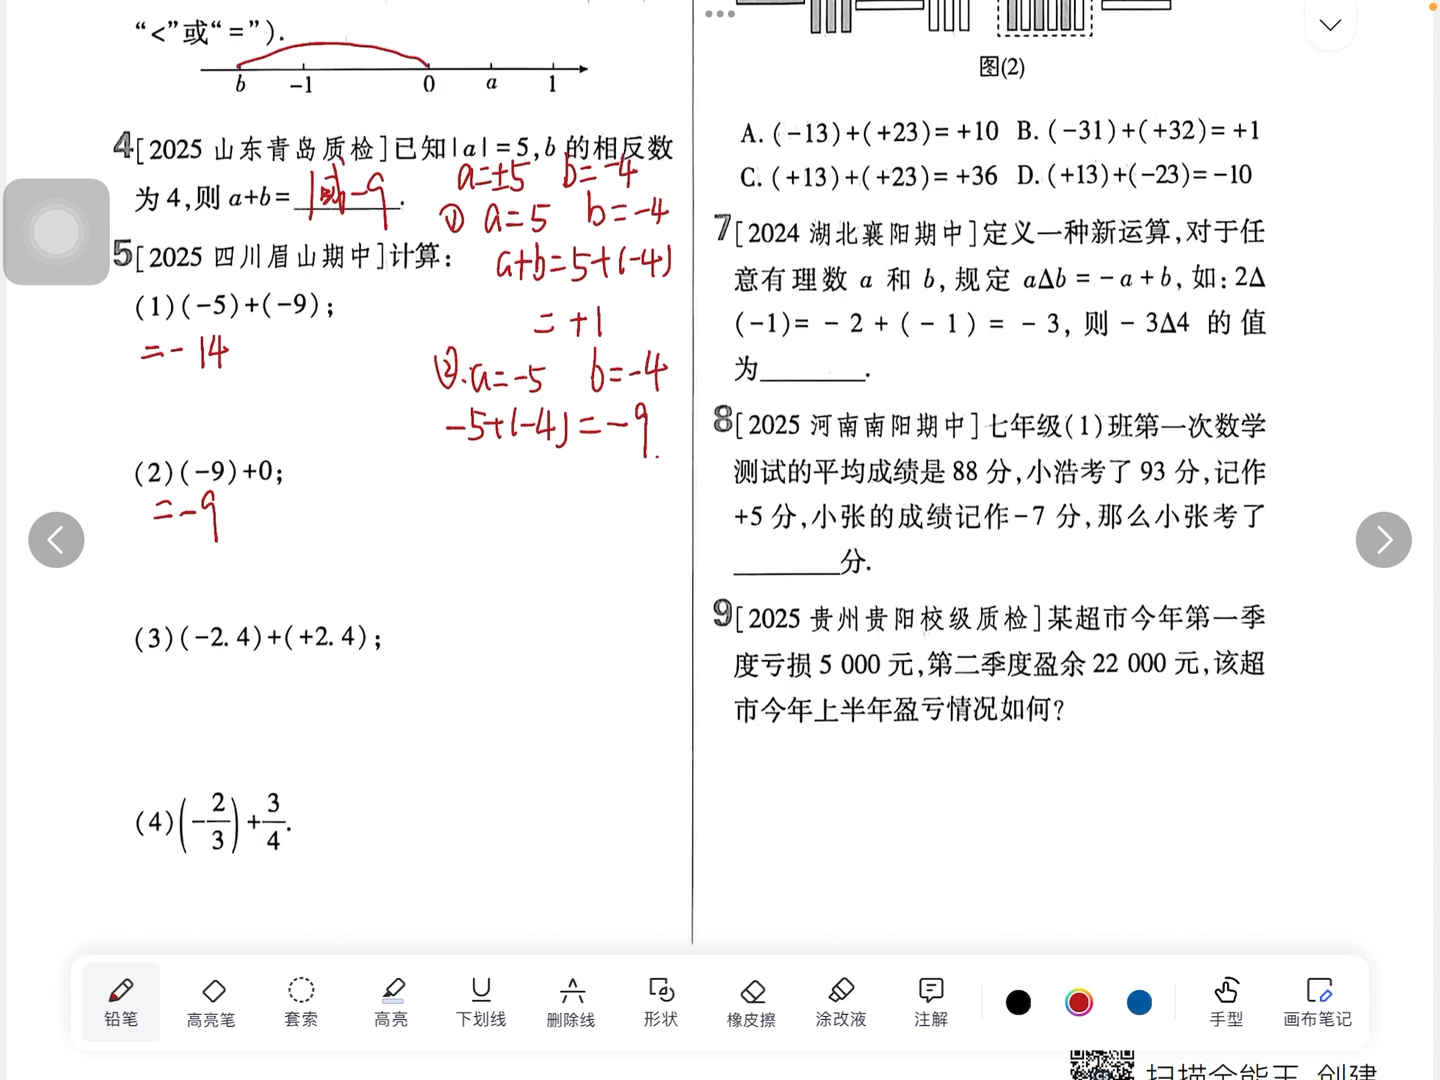 “<”或“=”).
b -1 0 a 1
4[2025 山东青岛质检]已知|a|=5,b 的相反数
为 4,则 a+b=1或-9.
a=±5 b=-4
① a=5 b=-4
a+b=5+(-4)
=+1
②.a=-5 b=-4
-5+(-4)=-9.
5[2025 四川眉山期中]计算:
(1)(-5)+(-9);
=-14
(2)(-9)+0;
=-9
(3)(-2.4)+(+2.4);
(4)(-2/3)+3/4.
图(2)
A.(-13)+(+23)=+10 B.(-31)+(+32)=+1
C.(+13)+(+23)=+36 D.(+13)+(-23)=-10
7[2024 湖北襄阳期中]定义一种新运算,对于任
意有理数 a 和 b,规定 aΔb=-a+b,如:2Δ
(-1)=-2+(-1)=-3,则-3Δ4 的值
为________.
8[2025 河南南阳期中]七年级(1)班第一次数学
测试的平均成绩是 88 分,小浩考了 93 分,记作
+5 分,小张的成绩记作-7 分,那么小张考了
________分.
9[2025 贵州贵阳校级质检]某超市今年第一季
度亏损 5 000 元,第二季度盈余 22 000 元,该超
市今年上半年盈亏情况如何?
铅笔 高亮笔 套索 高亮 下划线 删除线 形状 橡皮擦 涂改液 注解 手型 画布笔记
扫描全能王 创建